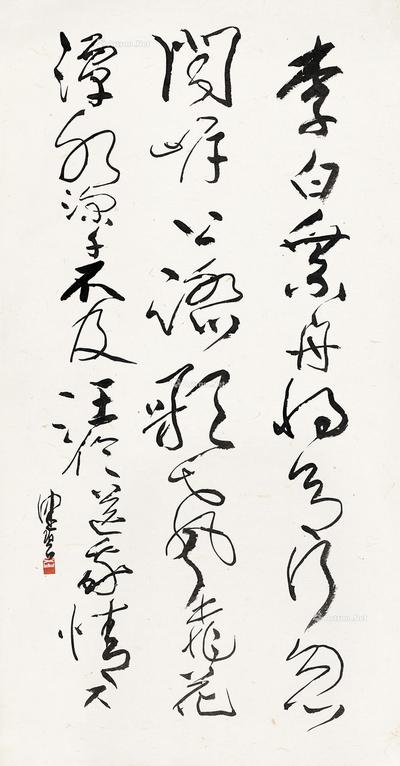 李白乘舟将欲行忽
闻岸上踏歌声桃花
潭水深千不及汪伦送我情尺